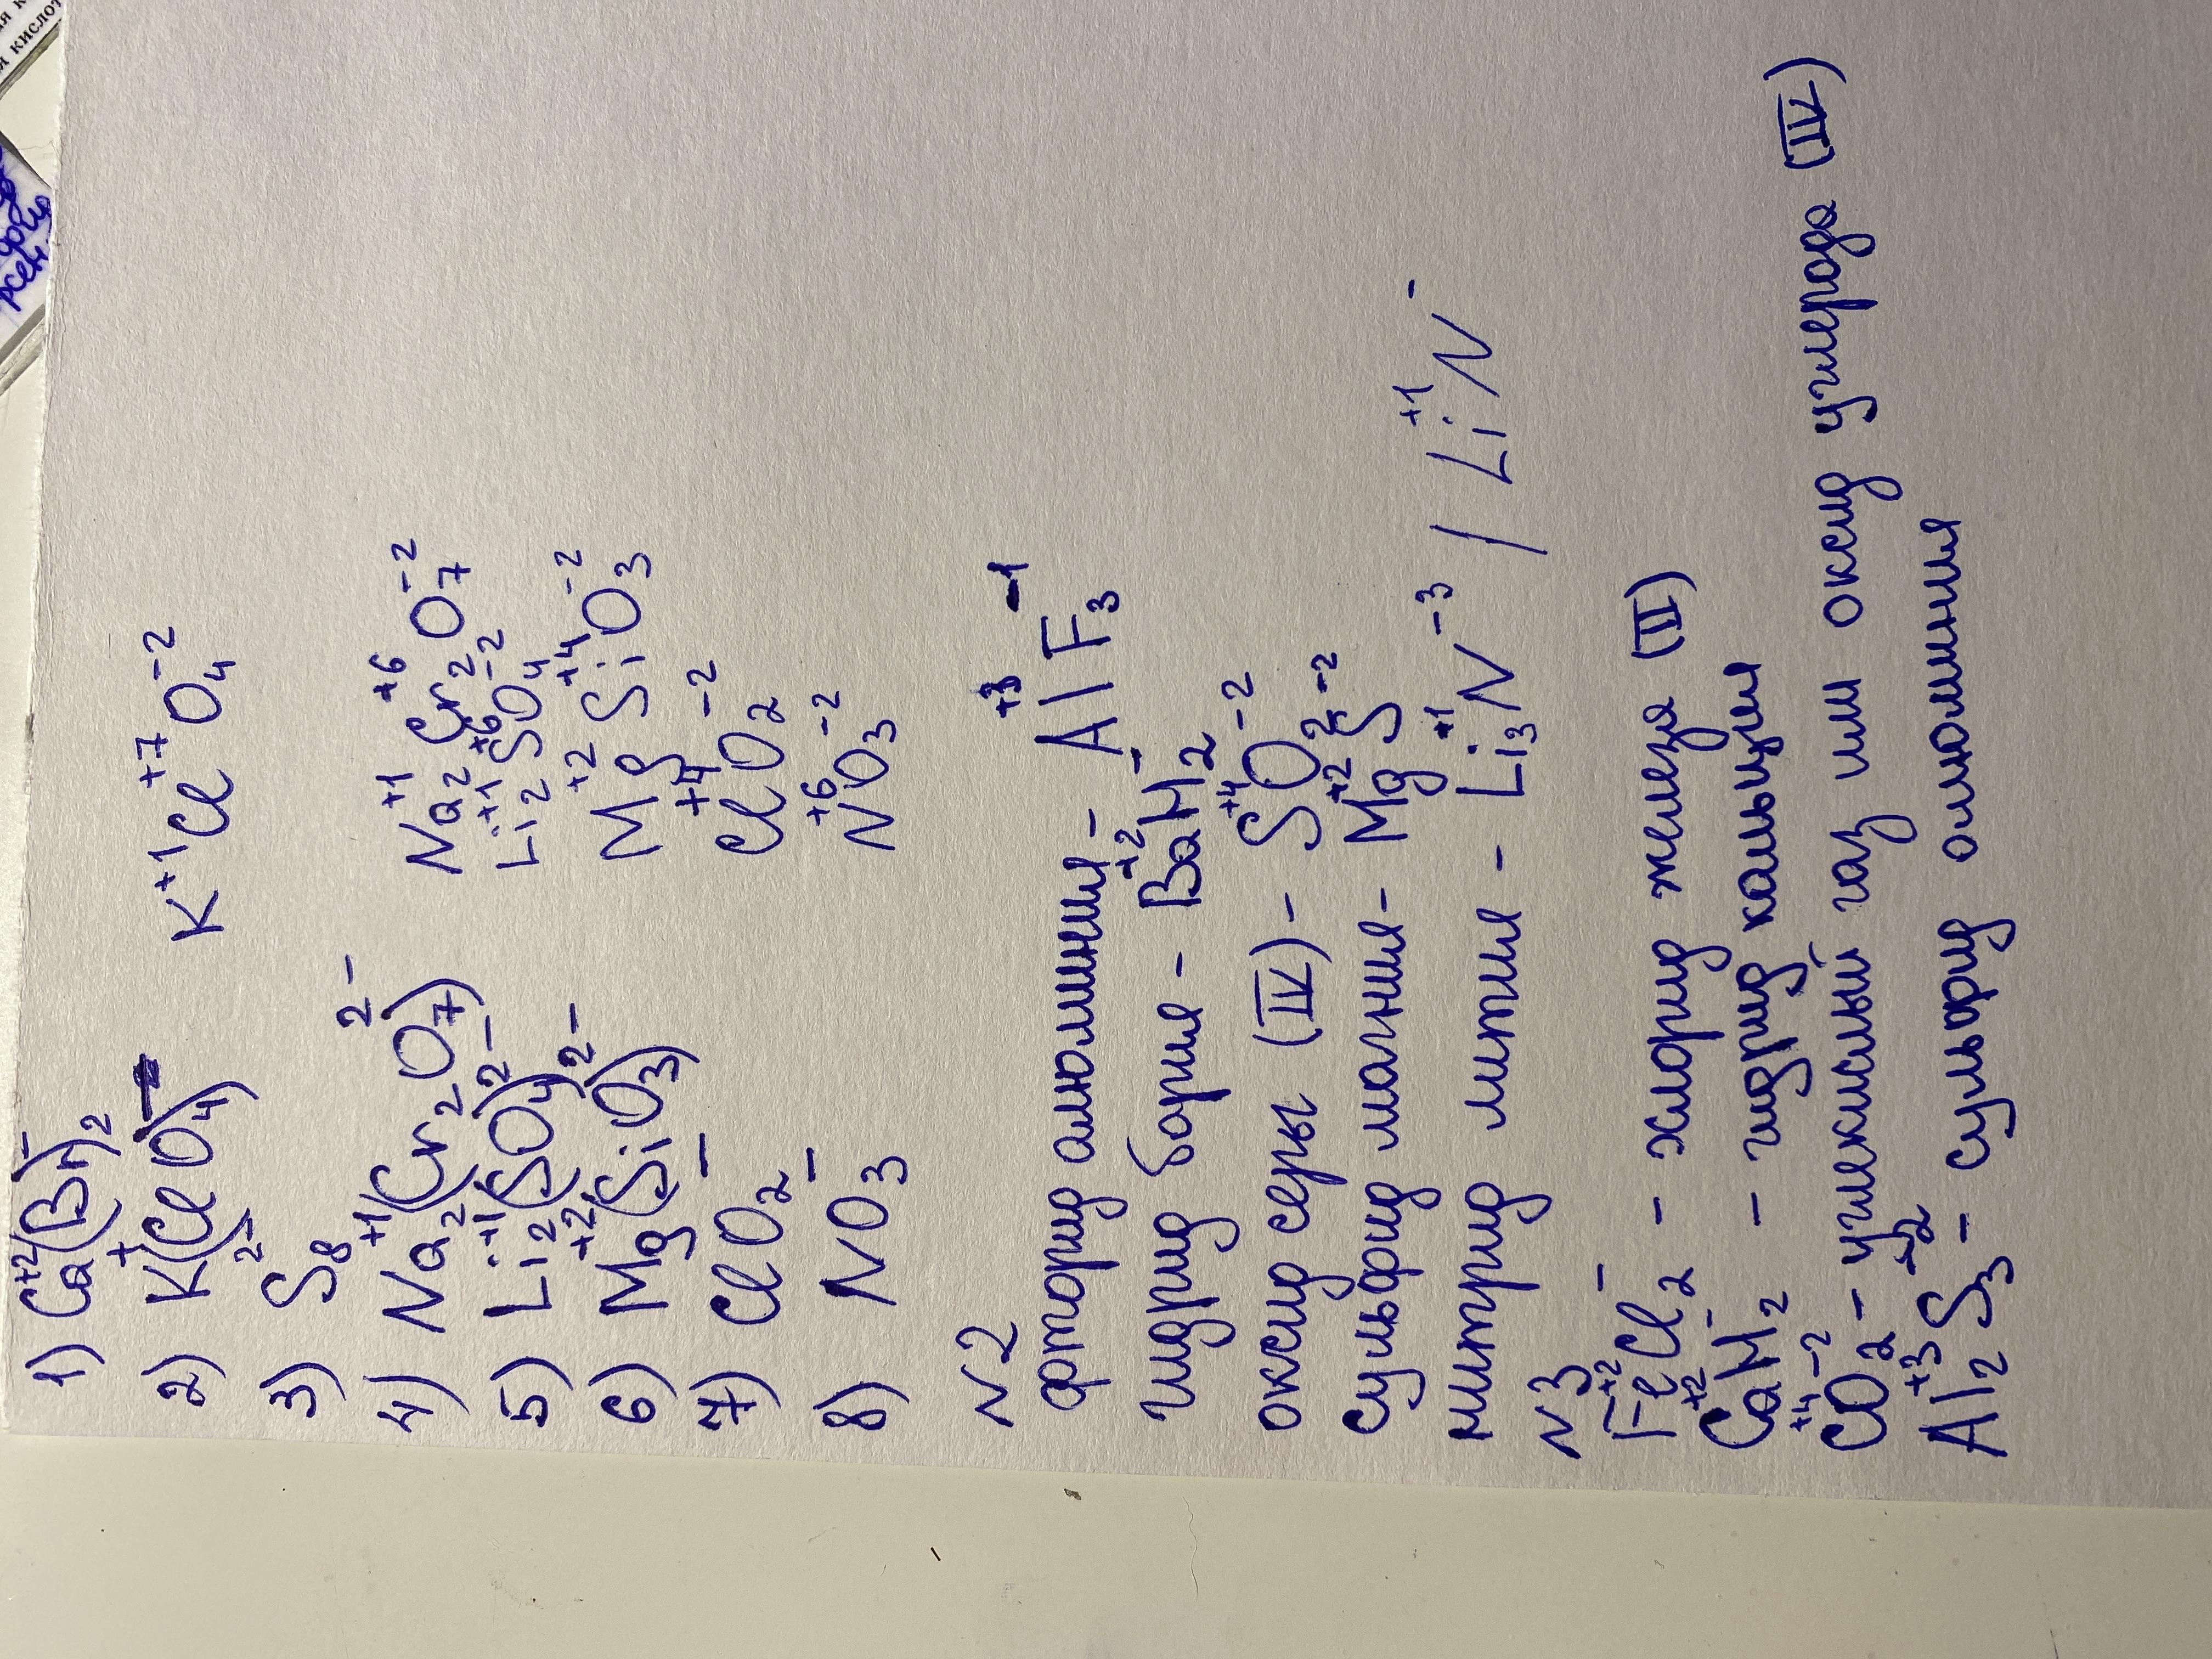 1) Ca⁺²(Br)₂⁻
2) K⁺(ClO₄)⁻ K⁺¹Cl⁺⁷O₄⁻²
3) S₈²⁻
4) Na₂⁺¹(Cr₂O₇)²⁻ Na₂⁺¹Cr₂⁺⁶O₇⁻²
5) Li₂⁺¹(SO₄)²⁻ Li₂⁺¹S⁺⁶O₄⁻²
6) Mg⁺²(SiO₃)²⁻ Mg⁺²Si⁺⁴O₃⁻²
7) ClO₂⁻ Cl⁺⁴O₂⁻²
8) NO₃⁻ N⁺⁶O₃⁻²
N2
фторид алюминия - Al⁺³F₃⁻¹
гидрид бария - Ba⁺²H₂⁻
оксид серы (IV) - S⁺⁴O₂⁻²
сульфид магния - Mg⁺²S⁻²
нитрид лития - Li₃⁺¹N⁻³ / Li⁺¹N⁻
N3
Fe⁺²Cl₂⁻ - хлорид железа (II)
Ca⁺²H₂⁻ - гидрид кальция
C⁺⁴O₂⁻² - углекислый газ или оксид углерода (IV)
Al₂⁺³S₃⁻² - сульфид алюминия